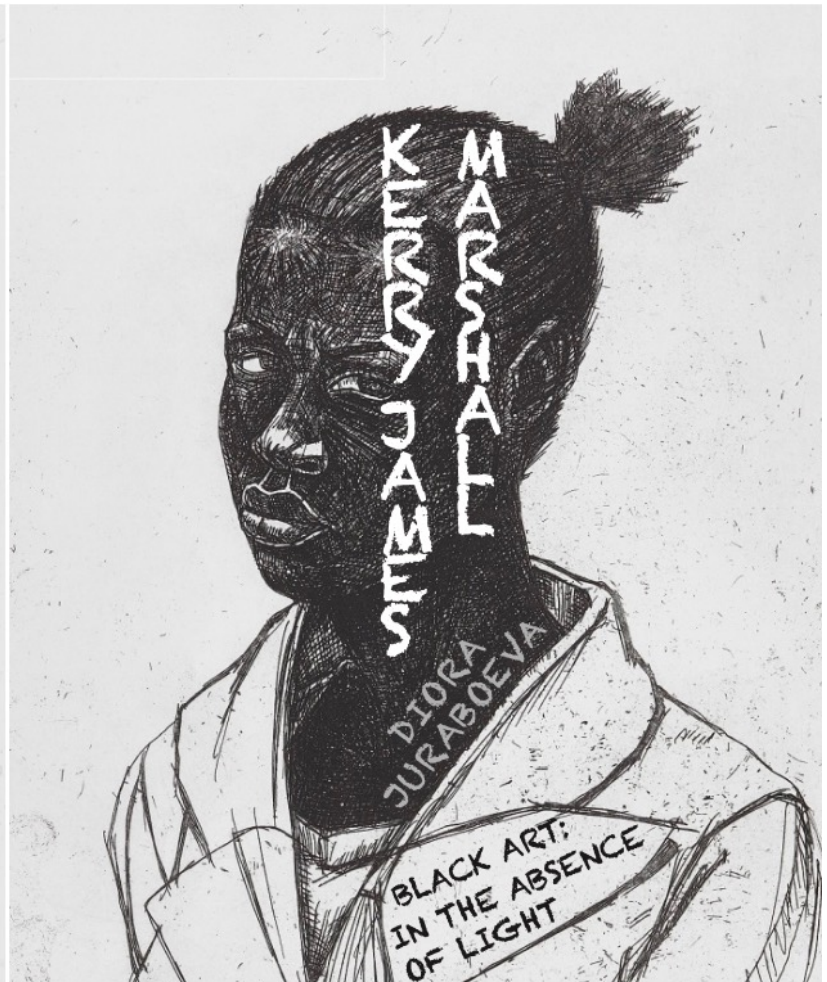 KERRY JAMES
MARSHALL
DIORA
JURABOEVA
BLACK ART:
IN THE ABSENCE
OF LIGHT